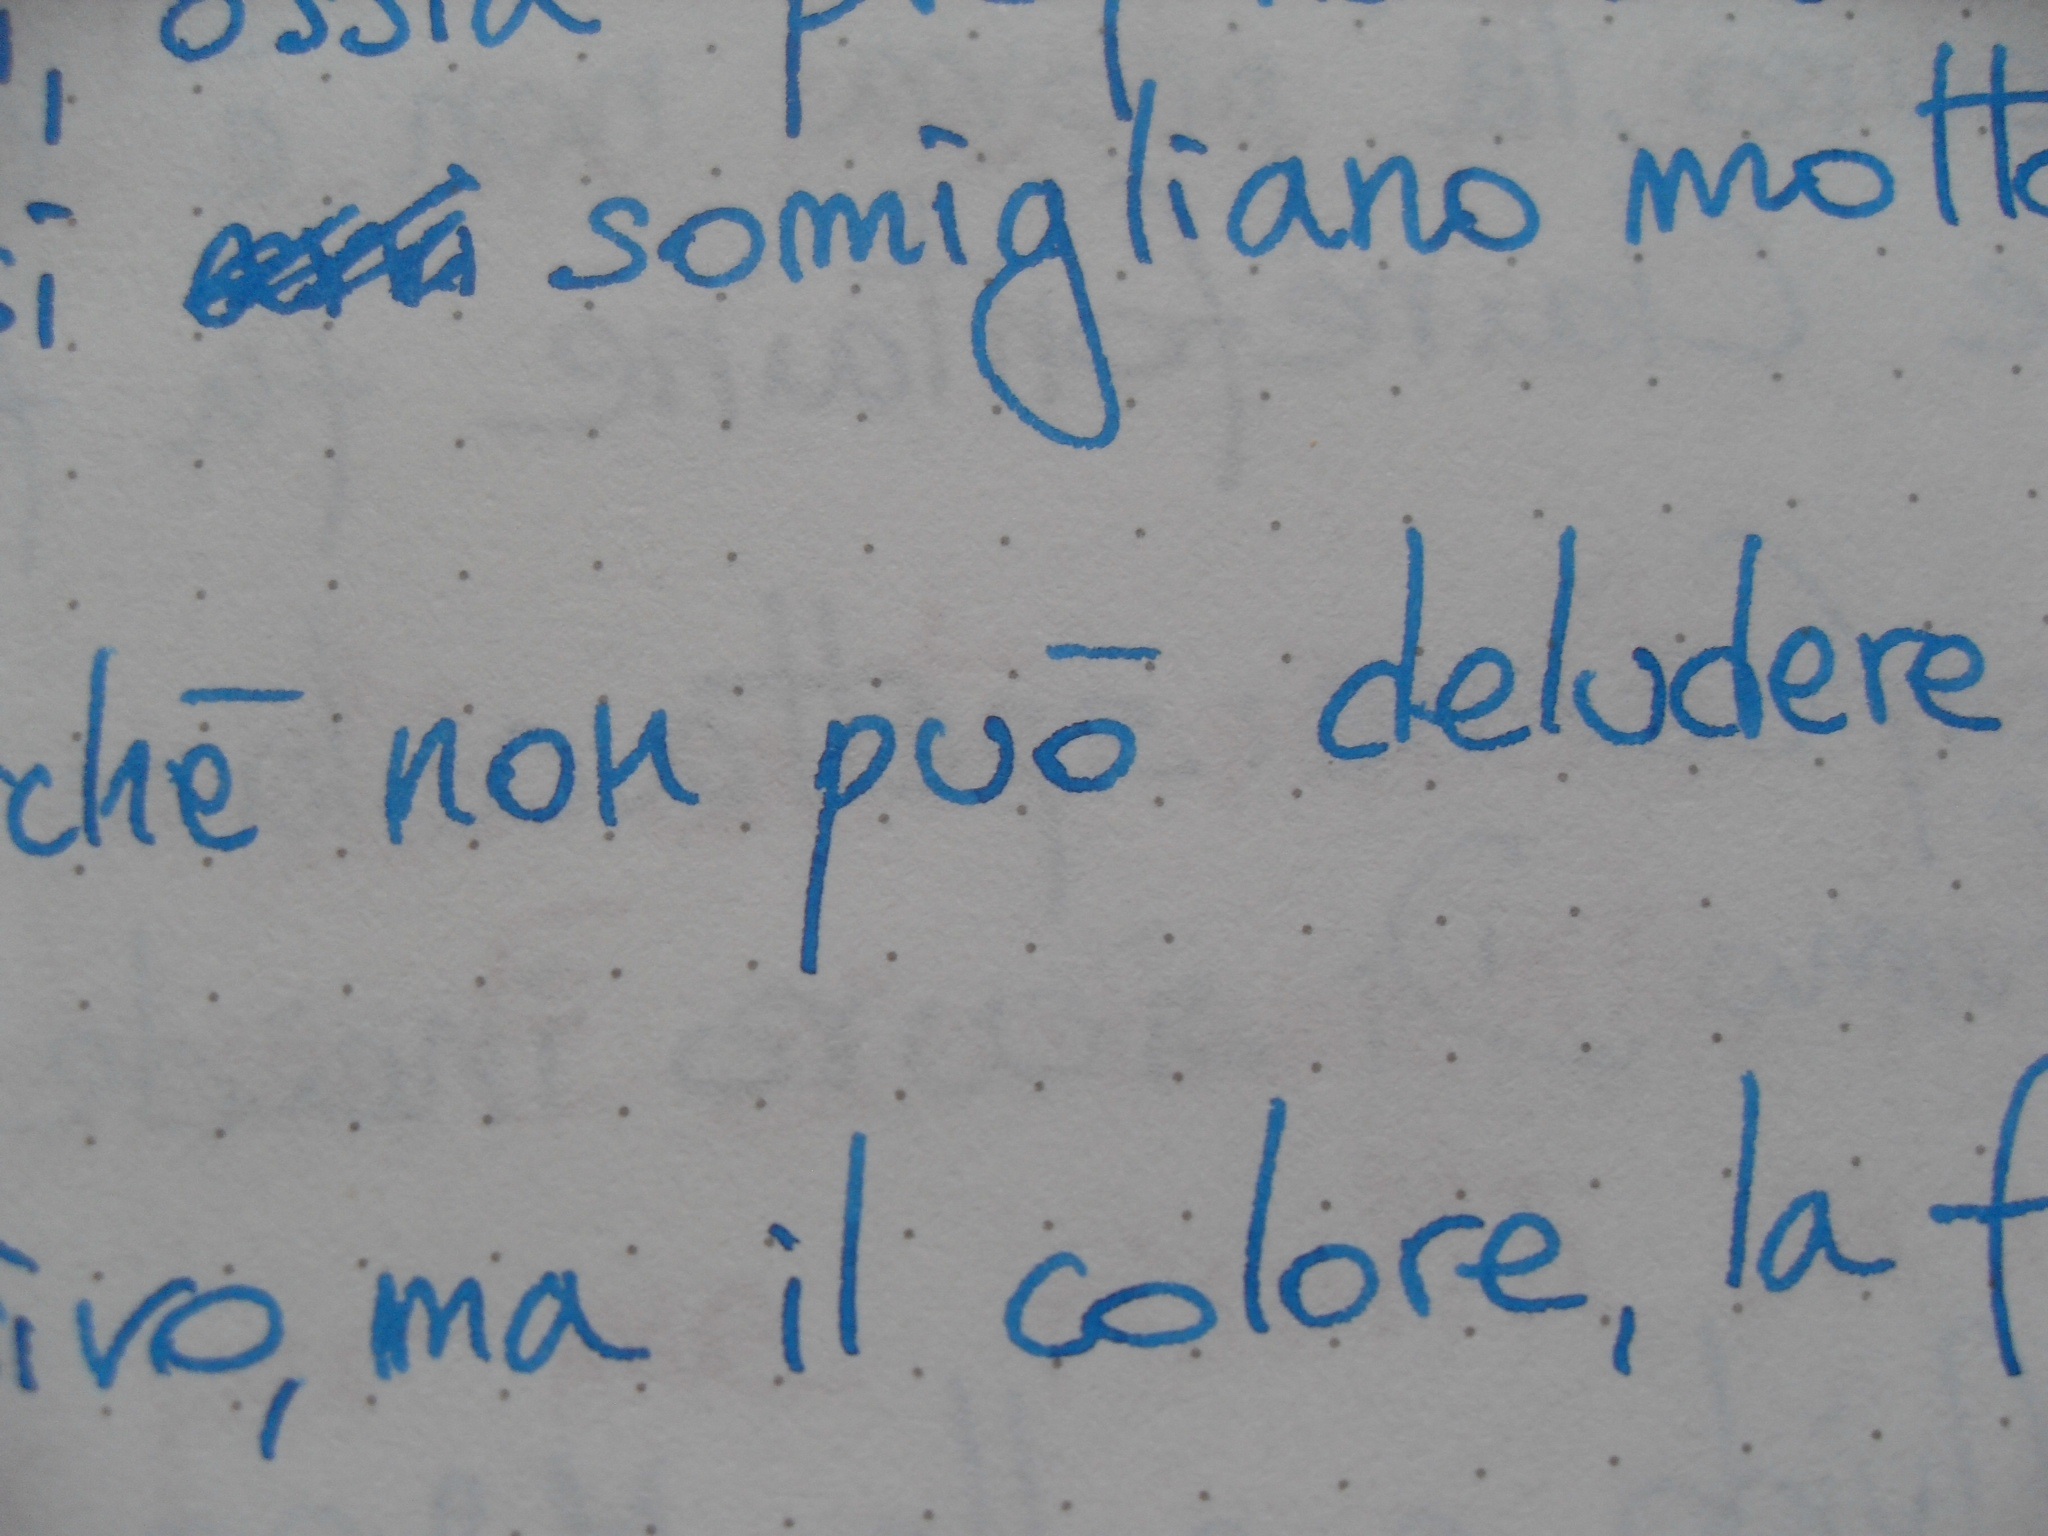 , ossia
si somigliano molto
chē non puō deludere
ivo, ma il colore, la f